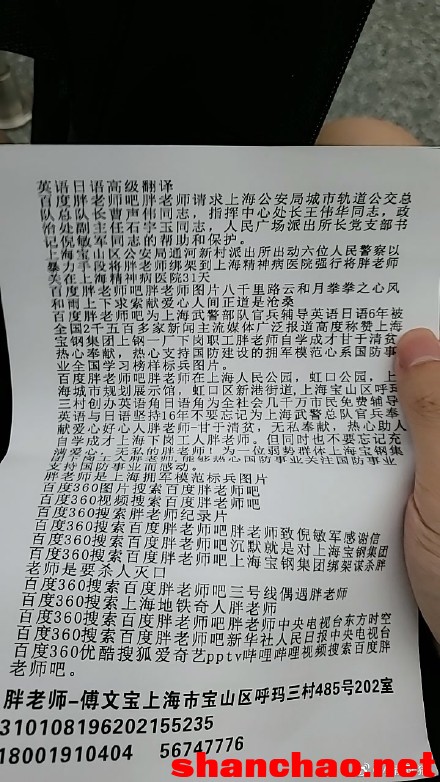 英语日语高级翻译
百度胖老师吧胖老师请求上海公安局城市轨道公交总
队总队长曹声伟同志，指挥中心处长王伟华同志，政
治处副主任石宇玉同志，人民广场派出所长党支部书
记倪敏军同志的帮助和保护。
上海宝山区公安局通河新村派出所出动六位人民警察以
暴力手段将胖老师绑架到上海精神病医院强行将胖老师
关在上海精神病医院31天
百度胖老师吧胖老师图片八千里路云和月拳拳之心风
和雨上下求索献爱心人间正道是沧桑
百度胖老师吧为上海武警部队官兵辅导英语日语6年被
全国2千五百多家新闻主流媒体广泛报道高度称赞上海
宝钢集团上钢一厂下岗职工胖老师自学成才甘于清贫
热心奉献，热心支持国防建设的拥军模范心系国防事
业全国学习榜样标兵图片。
百度胖老师吧胖老师在上海人民公园，虹口公园，上
海城市规划展示馆，虹口区新港街道，上海宝山区呼玛
三村创办英语角日语角为全社会几千万市民免费辅导
英语与日语坚持16年不要忘记为上海武警总队官兵奉
献爱心好心人胖老师-甘于清贫，无私奉献，热心助人
自学成才上海下岗工人胖老师。但同时也不要忘记充
满爱心，无私的胖老师！为一位弱势群体上海宝钢集
团下岗工人胖老师能够热心国防事业关注国防事业
支持国防事业而感动。
胖老师是上海拥军模范标兵图片
百度360图片搜索百度胖老师吧
百度360视频搜索百度胖老师吧
百度360搜索胖老师纪录片
百度360搜索百度胖老师吧胖老师致倪敏军感谢信
百度360搜索百度胖老师吧沉默就是对上海宝钢集团
百度360搜索百度胖老师吧上海宝钢集团绑架谋杀胖
老师是要杀人灭口
百度360搜索百度胖老师吧三号线偶遇胖老师
百度360搜索上海地铁奇人胖老师
百度360搜索百度胖老师吧胖老师中央电视台东方时空
百度360搜索百度胖老师吧新华社人民日报中央电视台
百度360优酷搜狐爱奇艺pptv哔哩哔哩视频搜索百度胖
老师吧。
胖老师-傅文宝上海市宝山区呼玛三村485号202室
310108196202155235
18001910404 56747776
shanchao.net